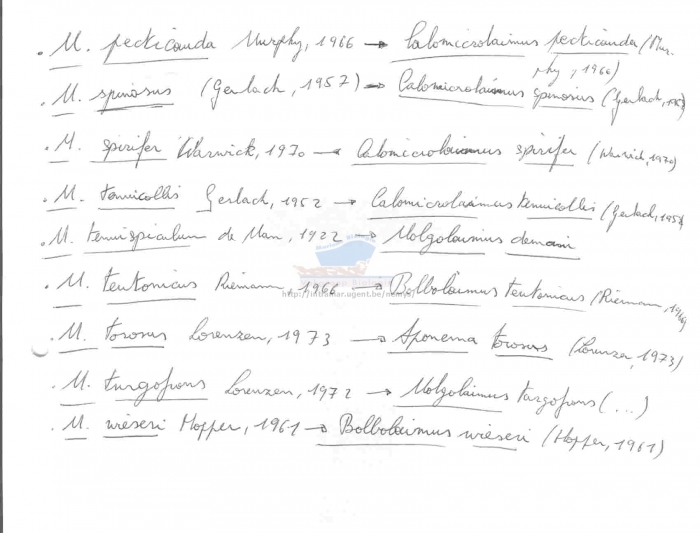 . M. pecticauda Murphy, 1966 → Calomicrolaimus pecticauda (Mur-
phy, 1966)
. M. spinosus (Gerlach, 1957) → Calomicrolaimus spinosus (Gerlach, 1957)
. M. spirifer Warwick, 1970 → Calomicrolaimus spirifer (Warwick, 1970)
. M. tenuicollis Gerlach, 1952 → Calomicrolaimus tenuicollis (Gerlach, 1952)
. M. tenuispiculum de Man, 1922 → Molgolaimus demani
. M. teutonicus Riemann, 1966 → Bolbolaimus teutonicus (Riemann, 1966)
http://intramar.ugent.be/nemys/
. M. torosus Lorenzen, 1973 → Aponema torosus (Lorenzen, 1973)
. M. turgofrons Lorenzen, 1972 → Molgolaimus turgofrons (...)
. M. wieseri Hopper, 1961 → Bolbolaimus wieseri (Hopper, 1961)